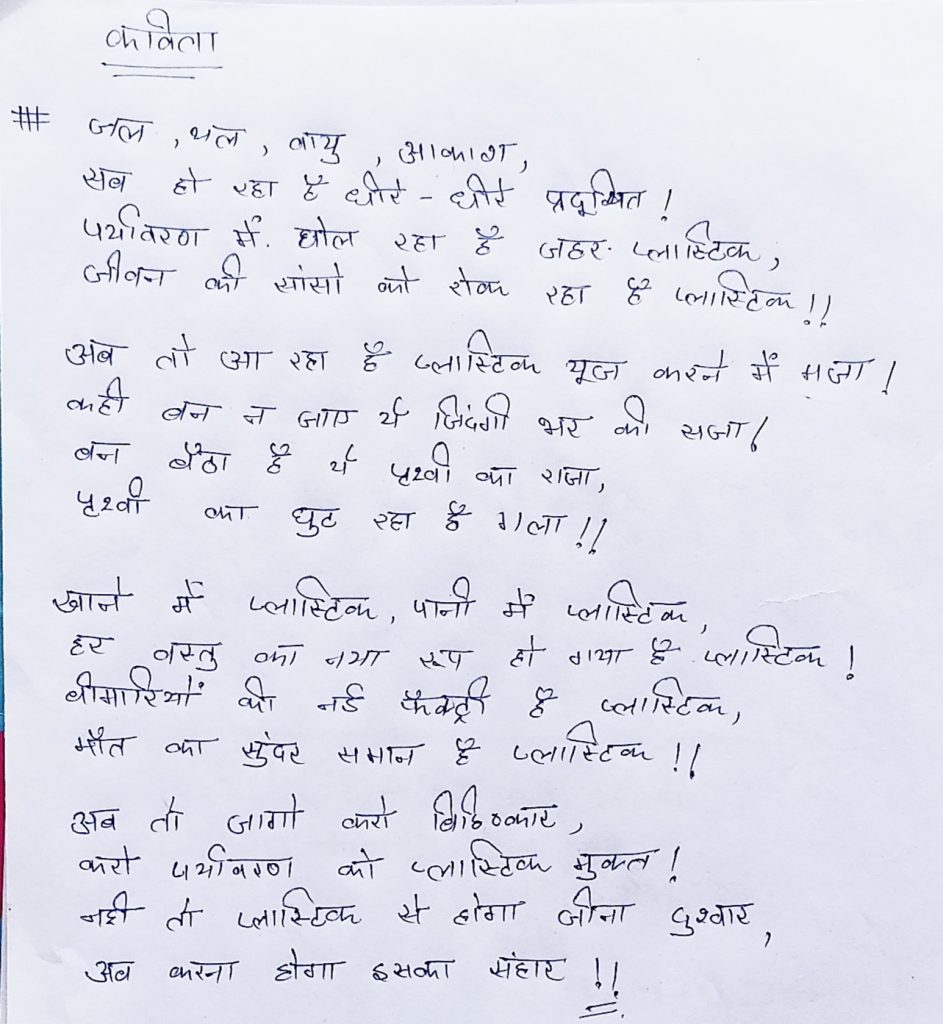 कविता
# जल , थल , वायु , आकाश,
सब हो रहा है धीरे - धीरे प्रदूषित !
पर्यावरण में घोल रहा है जहर प्लास्टिक,
जीवन की सांसो को रोक रहा है प्लास्टिक !!
अब तो आ रहा है प्लास्टिक यूज करने में मजा !
कही बन न जाए ये जिंदगी भर की सजा !
बन बैठा है ये पृथ्वी का राजा,
पृथ्वी का घुट रहा है गला !!
खाने में प्लास्टिक, पानी में प्लास्टिक,
हर वस्तु का नया रूप हो गया है प्लास्टिक !
बीमारियों की नई फैक्ट्री है प्लास्टिक,
मौत का सुंदर समान है प्लास्टिक !!
अब तो जागो करो बिहिष्कार,
करो पर्यावरण को प्लास्टिक मुक्त !
नही तो प्लास्टिक से होगा जीना दुश्वार,
अब करना होगा इसका संहार !!